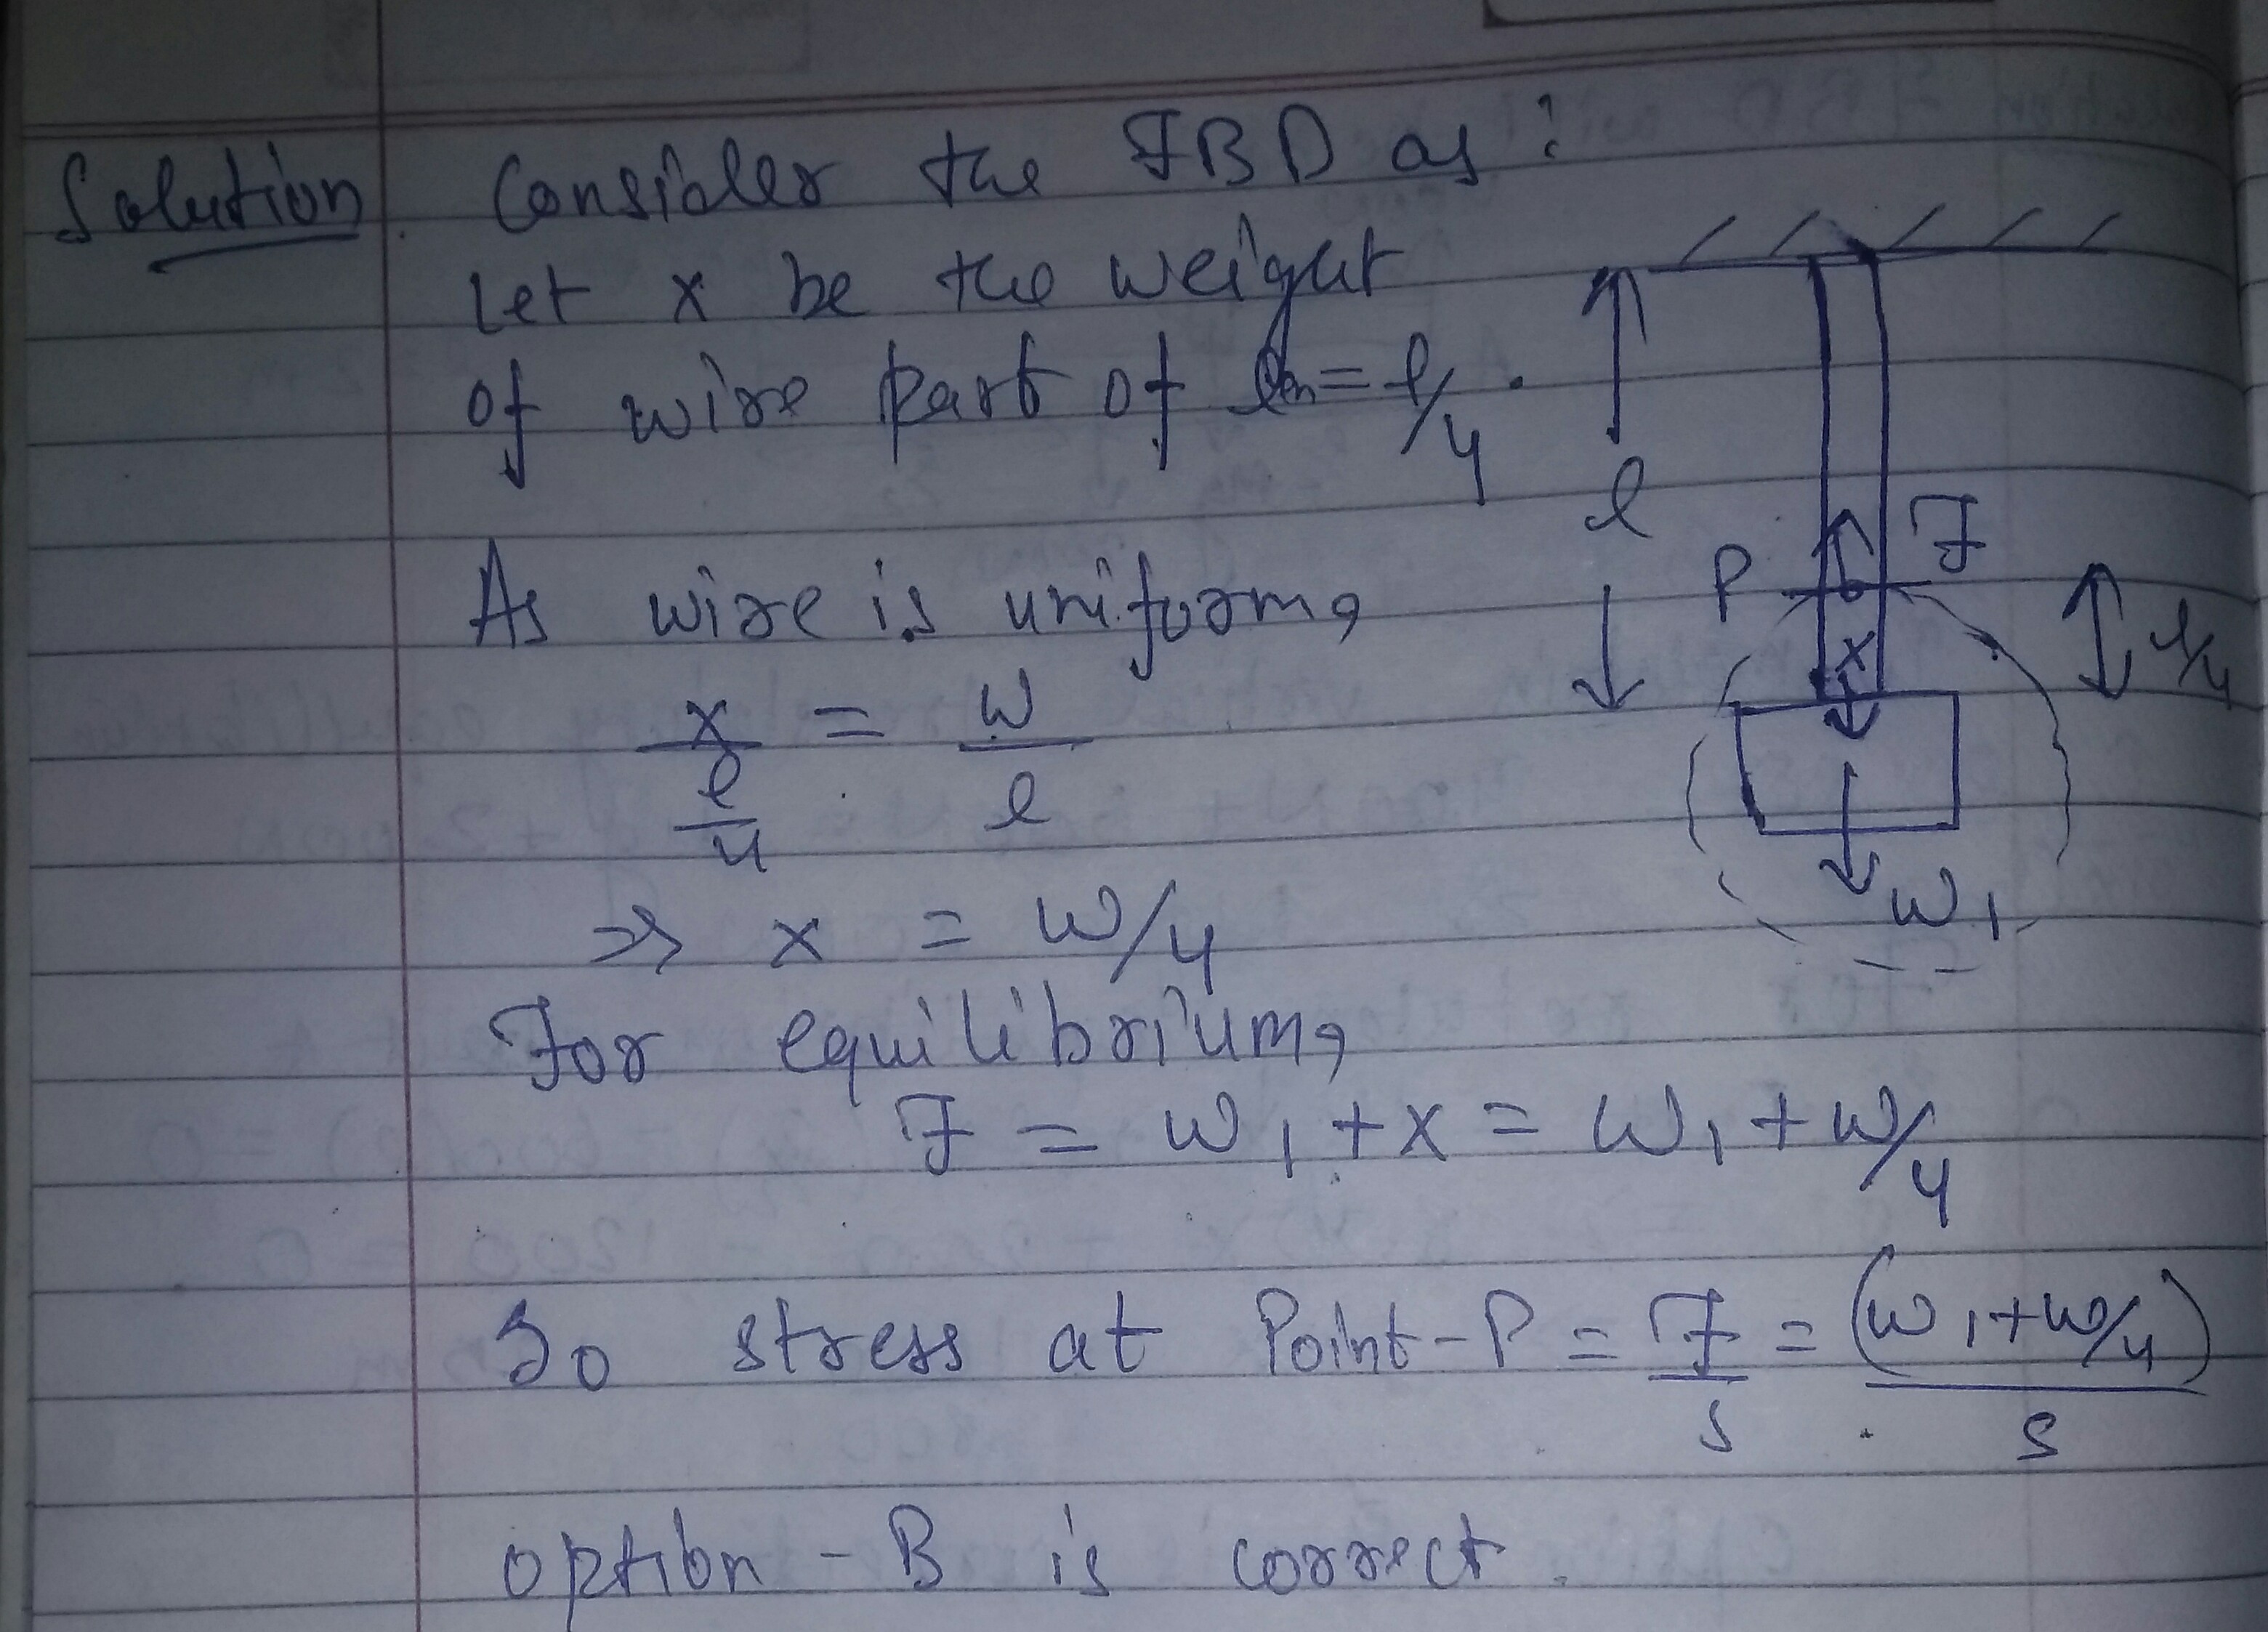 Solution. Consider the FBD as :
Let x be the weight
of wire part of len = l/4 .
As wire is uniform,
x / (l/4) = w / l
⇒ x = w/4
For equilibrium,
F = w1 + x = w1 + w/4
So stress at Point-P = F/s = (w1 + w/4) / s
option - B is correct.
l
P
F
x
l/4
w1